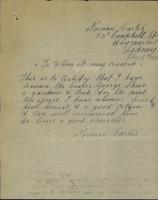 Norman Carter
Campbell St
Haymarket
Sydney
To Whom it may concern
This is to Certify that I have
known the bearer George
a gardener & Cook for the past
ten years I have always found
him honest & a good Citizen
& Can well recommend him
he bears a good character
Norman Carter